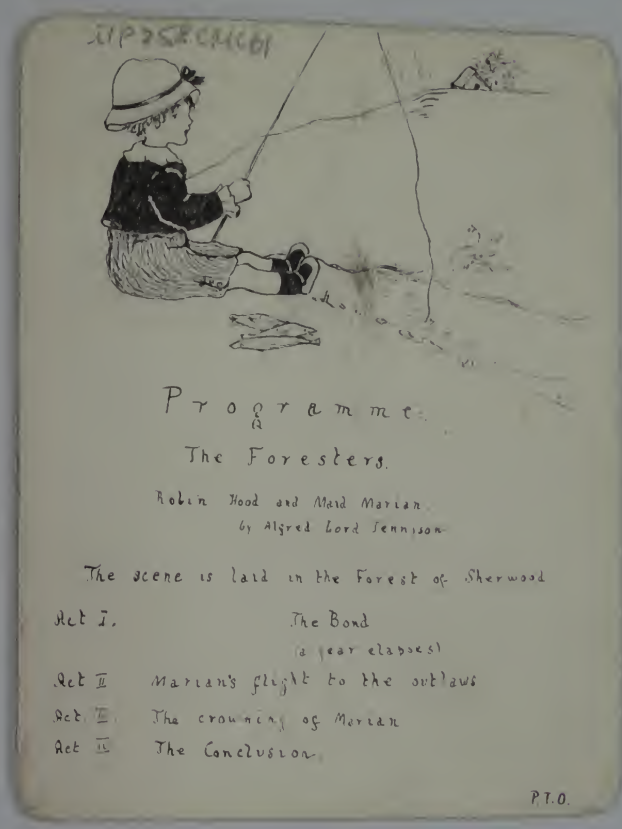 Programme.
The Foresters.
Robin Hood and Maid Marian.
by Alfred Lord Tennison
The scene is laid in the Forest of Sherwood
Act I. The Bond
(a year elapses)
Act II Marian's flight to the outlaws
Act III The crowning of Marian
Act IV The Conclusion.
P.T.O.